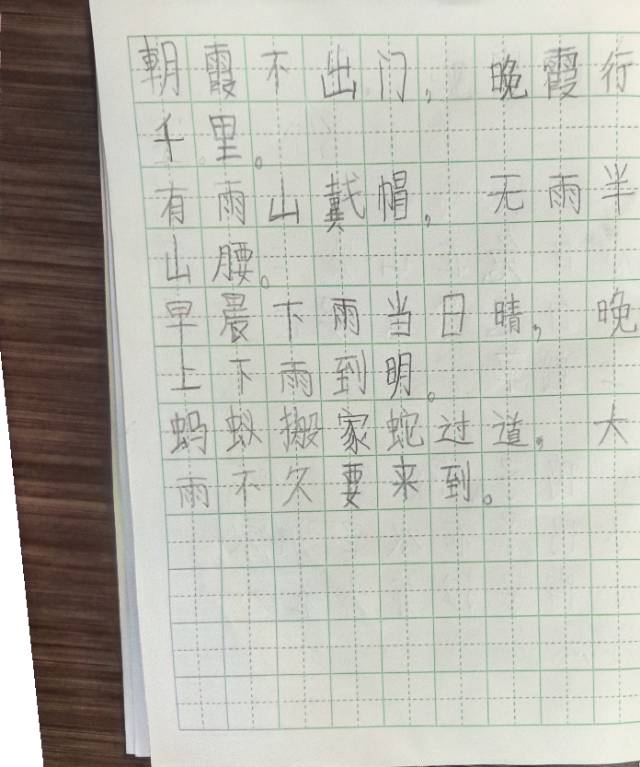 朝霞不出门，晚霞行
千里。
有雨山戴帽，无雨半
山腰。
早晨下雨当日晴，晚
上下雨到明。
蚂蚁搬家蛇过道，大
雨不久要来到。